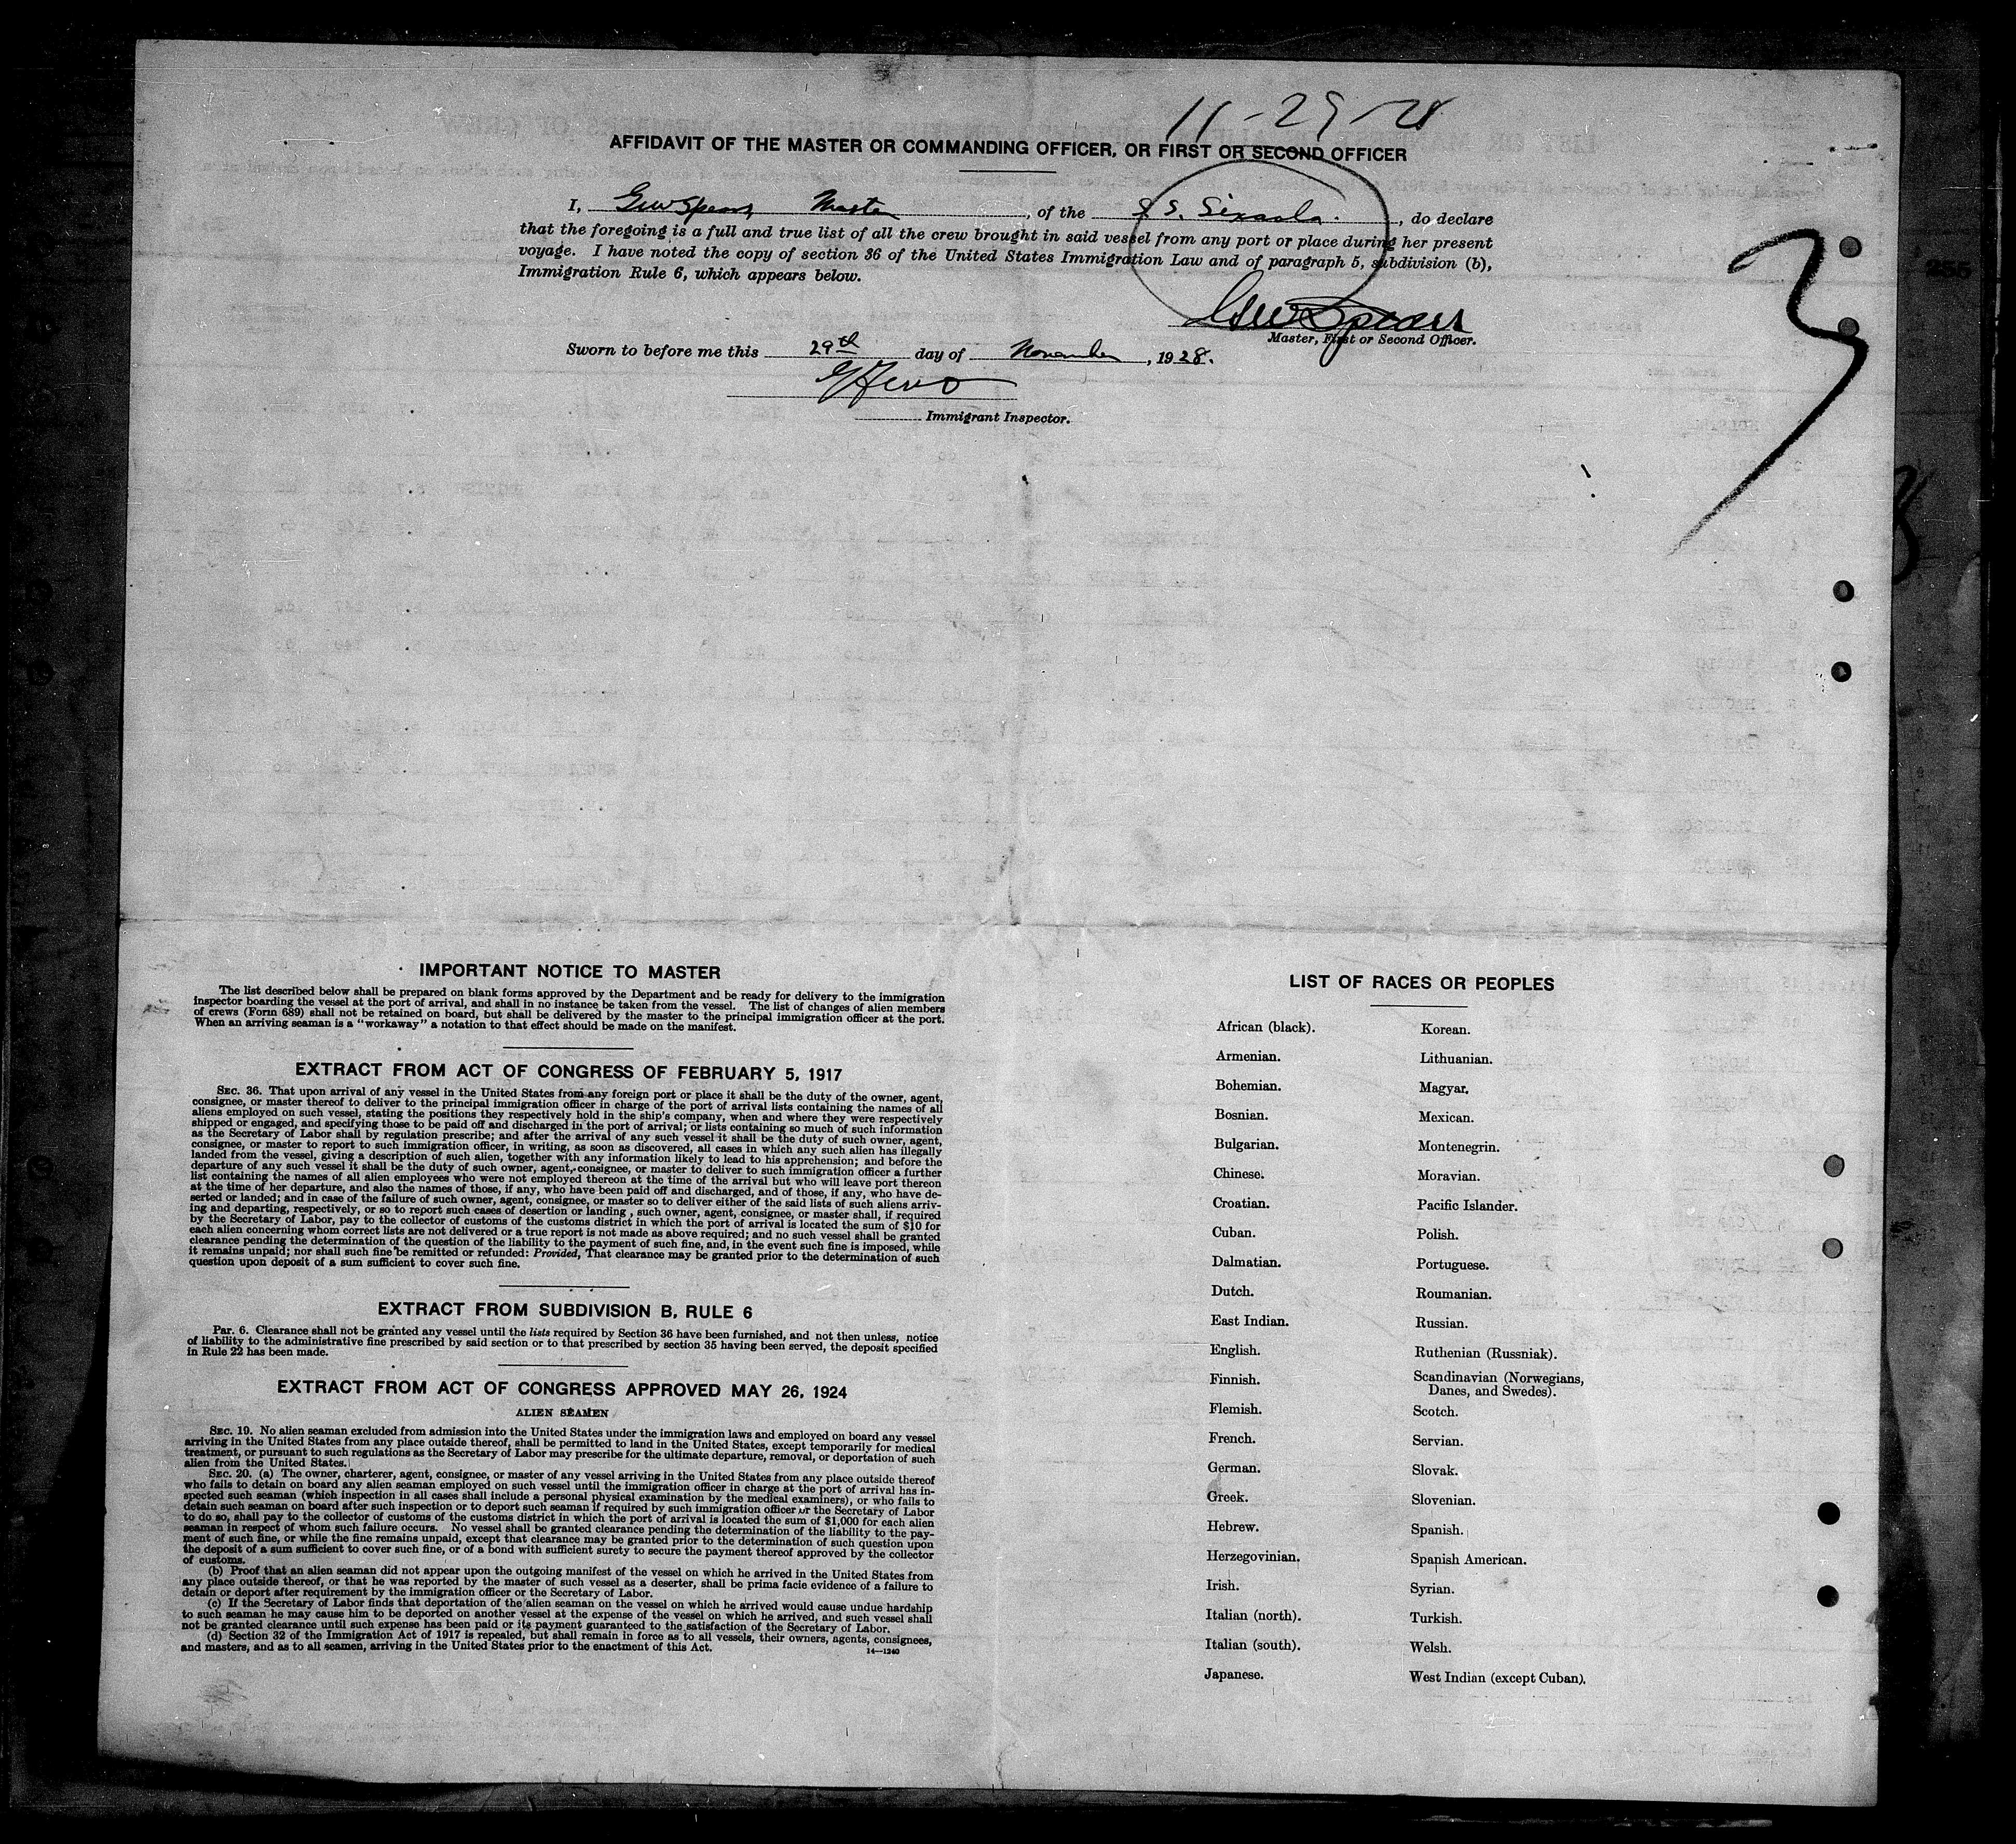 11-29-28
AFFIDAVIT OF THE MASTER OR COMMANDING OFFICER, OR FIRST OR SECOND OFFICER
I, Geo W Spears Master, of the S. S. Sixaola., do declare
that the foregoing is a full and true list of all the crew brought in said vessel from any port or place during her present
voyage. I have noted the copy of section 36 of the United States Immigration Law and of paragraph 5, subdivision (b),
Immigration Rule 6, which appears below.
Master, First or Second Officer.
Sworn to before me this 29th day of November, 1928.
Immigrant Inspector.
IMPORTANT NOTICE TO MASTER
The list described below shall be prepared on blank forms approved by the Department and be ready for delivery to the immigration
inspector boarding the vessel at the port of arrival, and shall in no instance be taken from the vessel. The list of changes of alien members
of crews (Form 689) shall not be retained on board, but shall be delivered by the master to the principal immigration officer at the port.
When an arriving seaman is a "workaway" a notation to that effect should be made on the manifest.
EXTRACT FROM ACT OF CONGRESS OF FEBRUARY 5, 1917
SEC. 36. That upon arrival of any vessel in the United States from any foreign port or place it shall be the duty of the owner, agent,
consignee, or master thereof to deliver to the principal immigration officer in charge of the port of arrival lists containing the names of all
aliens employed on such vessel, stating the positions they respectively hold in the ship's company, when and where they were respectively
shipped or engaged, and specifying those to be paid off and discharged in the port of arrival; or lists containing so much of such information
as the Secretary of Labor shall by regulation prescribe; and after the arrival of any such vessel it shall be the duty of such owner, agent,
consignee, or master to report to such immigration officer, in writing, as soon as discovered, all cases in which any such alien has illegally
landed from the vessel, giving a description of such alien, together with any information likely to lead to his apprehension; and before the
departure of any such vessel it shall be the duty of such owner, agent, consignee, or master to deliver to such immigration officer a further
list containing the names of all alien employees who were not employed thereon at the time of the arrival but who will leave port thereon
at the time of her departure, and also the names of those, if any, who have been paid off and discharged, and of those, if any, who have de-
serted or landed; and in case of the failure of such owner, agent, consignee, or master so to deliver either of the said lists of such aliens arriv-
ing and departing, respectively, or so to report such cases of desertion or landing, such owner, agent, consignee, or master shall, if required
by the Secretary of Labor, pay to the collector of customs of the customs district in which the port of arrival is located the sum of $10 for
each alien concerning whom correct lists are not delivered or a true report is not made as above required; and no such vessel shall be granted
clearance pending the determination of the question of the liability to the payment of such fine, and, in the event such fine is imposed, while
it remains unpaid; nor shall such fine be remitted or refunded: Provided, That clearance may be granted prior to the determination of such
question upon deposit of a sum sufficient to cover such fine.
EXTRACT FROM SUBDIVISION B, RULE 6
Par. 6. Clearance shall not be granted any vessel until the lists required by Section 36 have been furnished, and not then unless, notice
of liability to the administrative fine prescribed by said section or to that prescribed by section 35 having been served, the deposit specified
in Rule 22 has been made.
EXTRACT FROM ACT OF CONGRESS APPROVED MAY 26, 1924
ALIEN SEAMEN
SEC. 19. No alien seaman excluded from admission into the United States under the immigration laws and employed on board any vessel
arriving in the United States from any place outside thereof, shall be permitted to land in the United States, except temporarily for medical
treatment, or pursuant to such regulations as the Secretary of Labor may prescribe for the ultimate departure, removal, or deportation of such
alien from the United States.
SEC. 20. (a) The owner, charterer, agent, consignee, or master of any vessel arriving in the United States from any place outside thereof
who fails to detain on board any alien seaman employed on such vessel until the immigration officer in charge at the port of arrival has in-
spected such seaman (which inspection in all cases shall include a personal physical examination by the medical examiners), or who fails to
detain such seaman on board after such inspection or to deport such seaman if required by such immigration officer or the Secretary of Labor
to do so, shall pay to the collector of customs of the customs district in which the port of arrival is located the sum of $1,000 for each alien
seaman in respect of whom such failure occurs. No vessel shall be granted clearance pending the determination of the liability to the pay-
ment of such fine, or while the fine remains unpaid, except that clearance may be granted prior to the determination of such question upon
the deposit of a sum sufficient to cover such fine, or of a bond with sufficient surety to secure the payment thereof approved by the collector
of customs.
(b) Proof that an alien seaman did not appear upon the outgoing manifest of the vessel on which he arrived in the United States from
any place outside thereof, or that he was reported by the master of such vessel as a deserter, shall be prima facie evidence of a failure to
detain or deport after requirement by the immigration officer or the Secretary of Labor.
(c) If the Secretary of Labor finds that deportation of the alien seaman on the vessel on which he arrived would cause undue hardship
to such seaman he may cause him to be deported on another vessel at the expense of the vessel on which he arrived, and such vessel shall
not be granted clearance until such expense has been paid or its payment guaranteed to the satisfaction of the Secretary of Labor.
(d) Section 32 of the Immigration Act of 1917 is repealed, but shall remain in force as to all vessels, their owners, agents, consignees,
and masters, and as to all seamen, arriving in the United States prior to the enactment of this Act.
14—1240
LIST OF RACES OR PEOPLES
African (black).
Armenian.
Bohemian.
Bosnian.
Bulgarian.
Chinese.
Croatian.
Cuban.
Dalmatian.
Dutch.
East Indian.
English.
Finnish.
Flemish.
French.
German.
Greek.
Hebrew.
Herzegovinian.
Irish.
Italian (north).
Italian (south).
Japanese.
Korean.
Lithuanian.
Magyar.
Mexican.
Montenegrin.
Moravian.
Pacific Islander.
Polish.
Portuguese.
Roumanian.
Russian.
Ruthenian (Russniak).
Scandinavian (Norwegians,
Danes, and Swedes).
Scotch.
Servian.
Slovak.
Slovenian.
Spanish.
Spanish American.
Syrian.
Turkish.
Welsh.
West Indian (except Cuban).